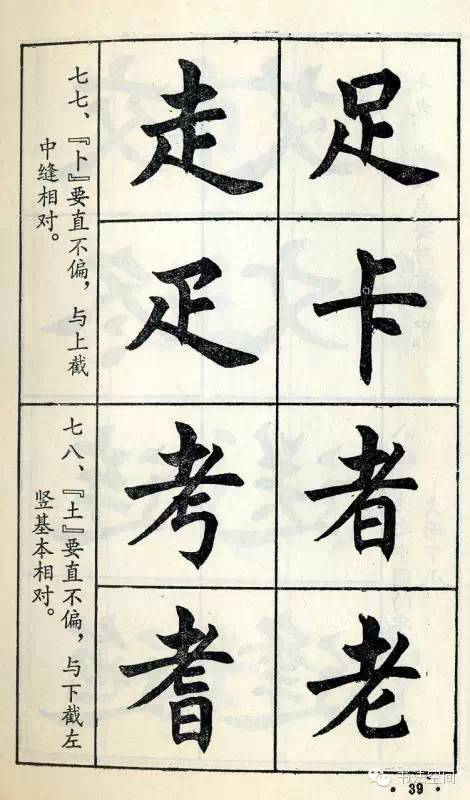 足
卡
走
疋
七七、『卜』要直不偏，与上截
中缝相对。
者
老
考
耆
七八、『土』要直不偏，与下截左
竖基本相对。
书法空间
·39·